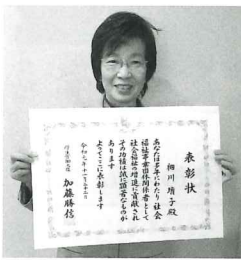 表彰状
細川 瑣子 殿
あなたは多年にわたり社会
福祉事業団体関係者として
社会福祉の増進に貢献され
その功績は誠に顕著なものが
あります
よってここに表彰します
令和元年十一月二十二日
厚生労働大臣
加藤勝信